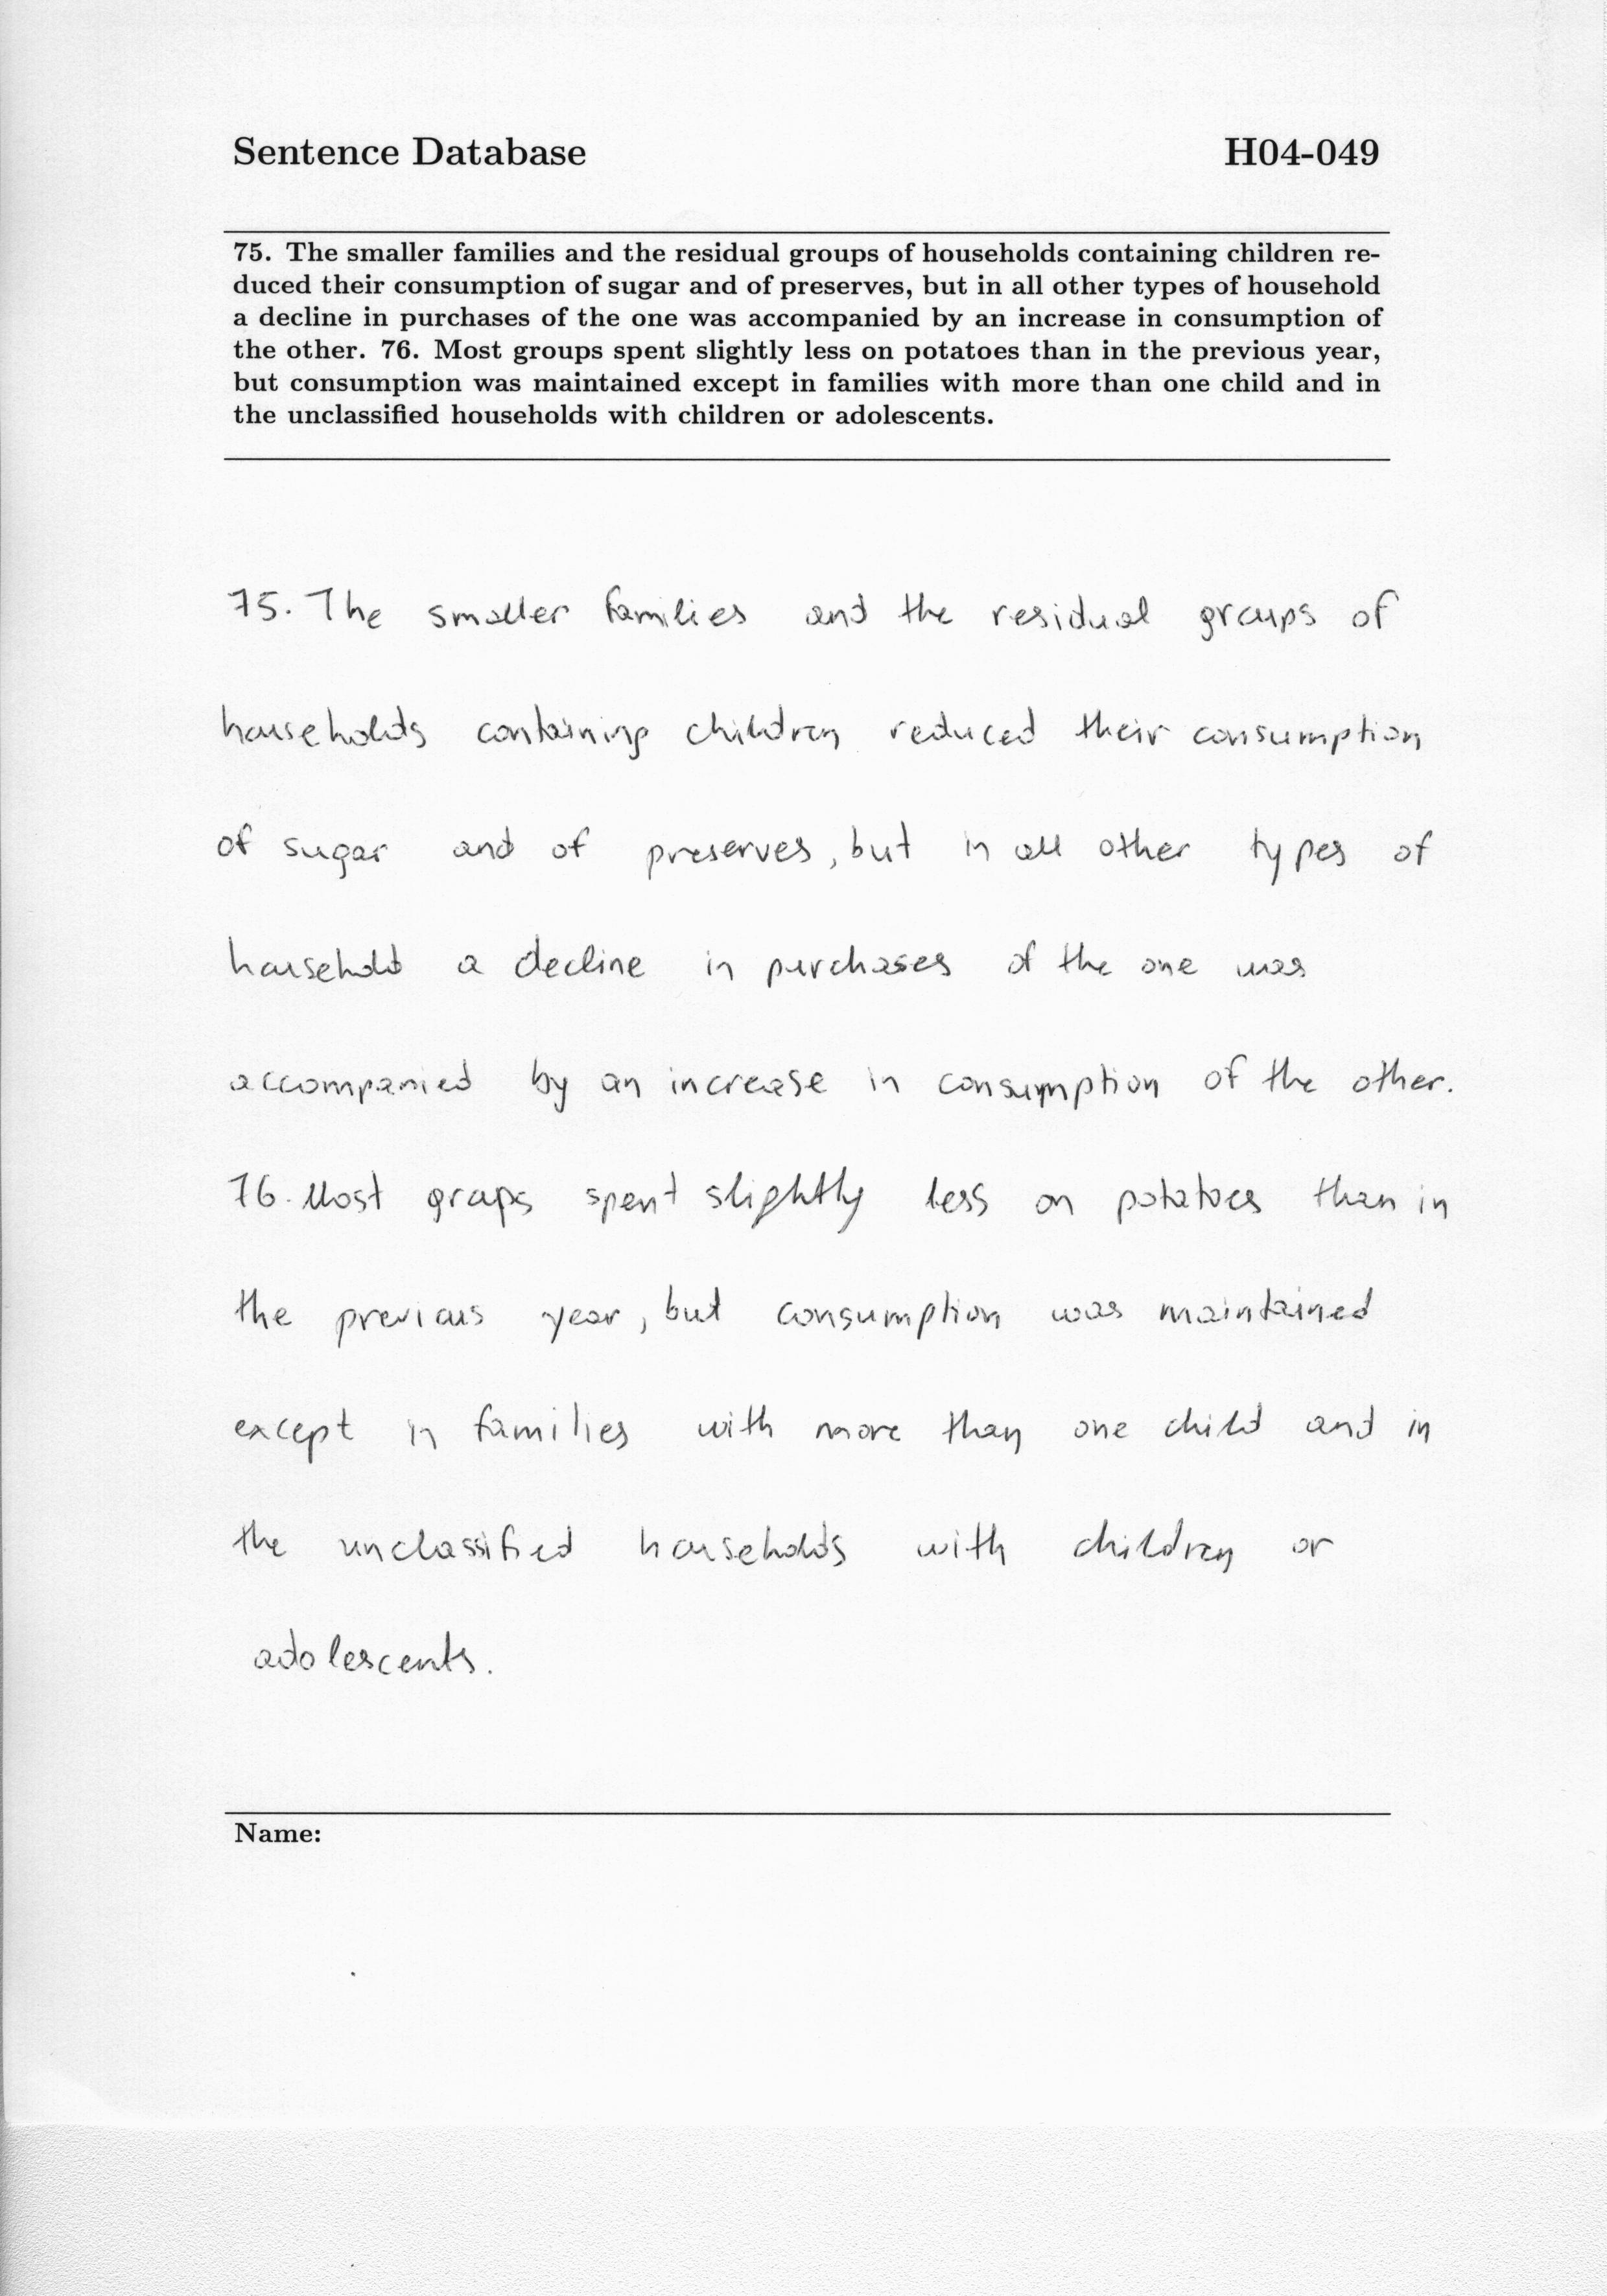 Sentence Database H04-049
75. The smaller families and the residual groups of households containing children re-
duced their consumption of sugar and of preserves, but in all other types of household
a decline in purchases of the one was accompanied by an increase in consumption of
the other. 76. Most groups spent slightly less on potatoes than in the previous year,
but consumption was maintained except in families with more than one child and in
the unclassified households with children or adolescents.
75. The smaller families and the residual groups of
households containing children reduced their consumption
of sugar and of preserves, but in all other types of
household a decline in purchases of the one was
accompanied by an increase in consumption of the other.
76. Most groups spent slightly less on potatoes than in
the previous year, but consumption was maintained
except in families with more than one child and in
the unclassified households with children or
adolescents.
Name: